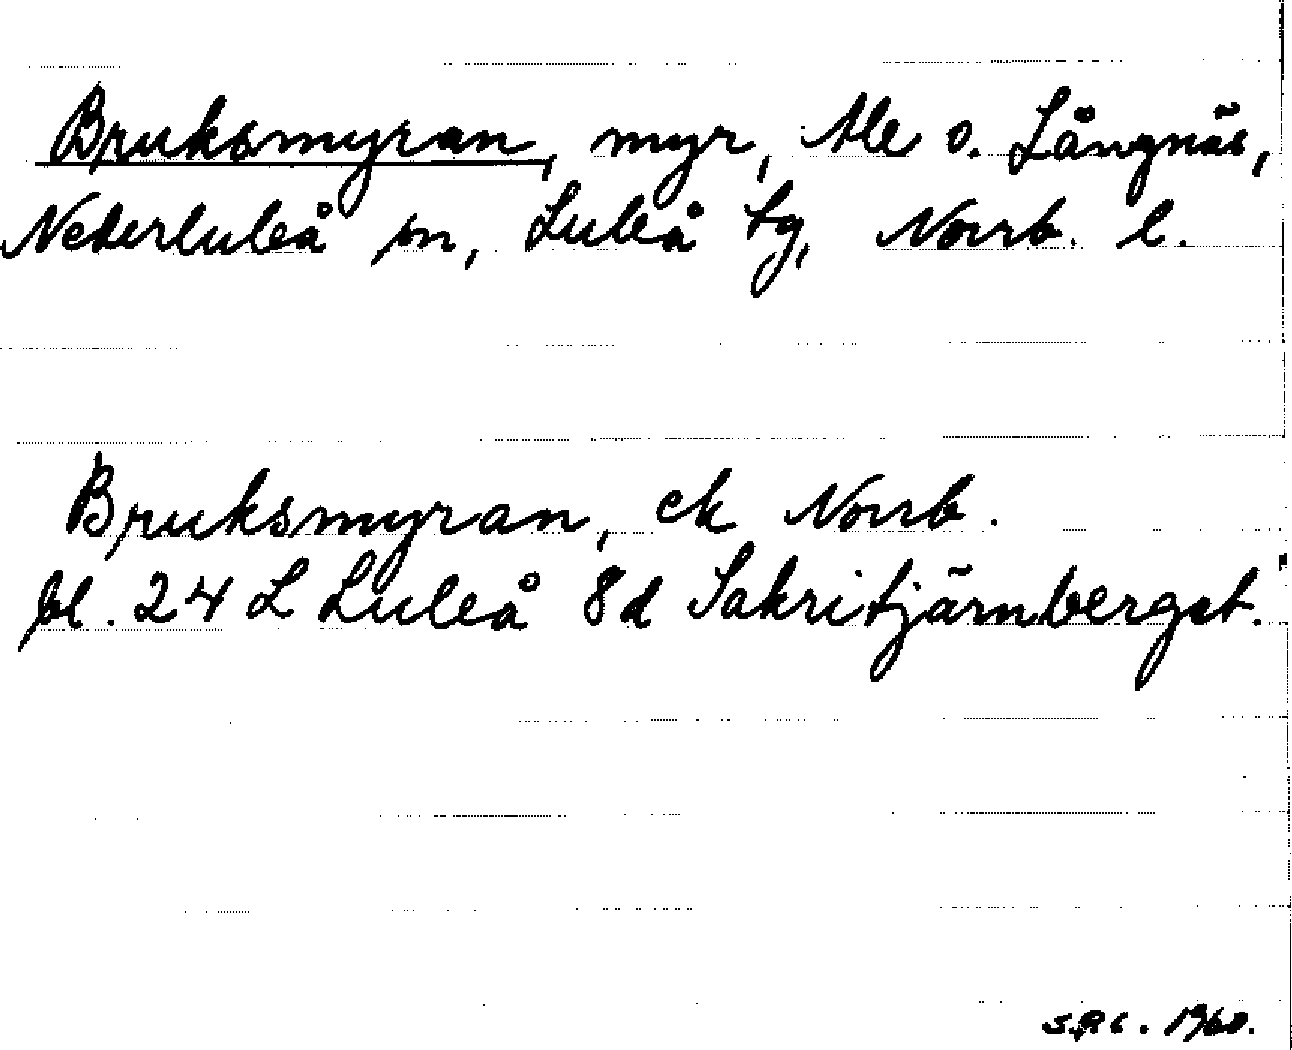 Bruksmyran, myr, Ale o. Långnäs,
Nederluleå sn, Luleå tg, Norrb. l.
Bruksmyran, ek Norrb.
bl. 24 L Luleå 8d Sakritjärnberget.
1960.